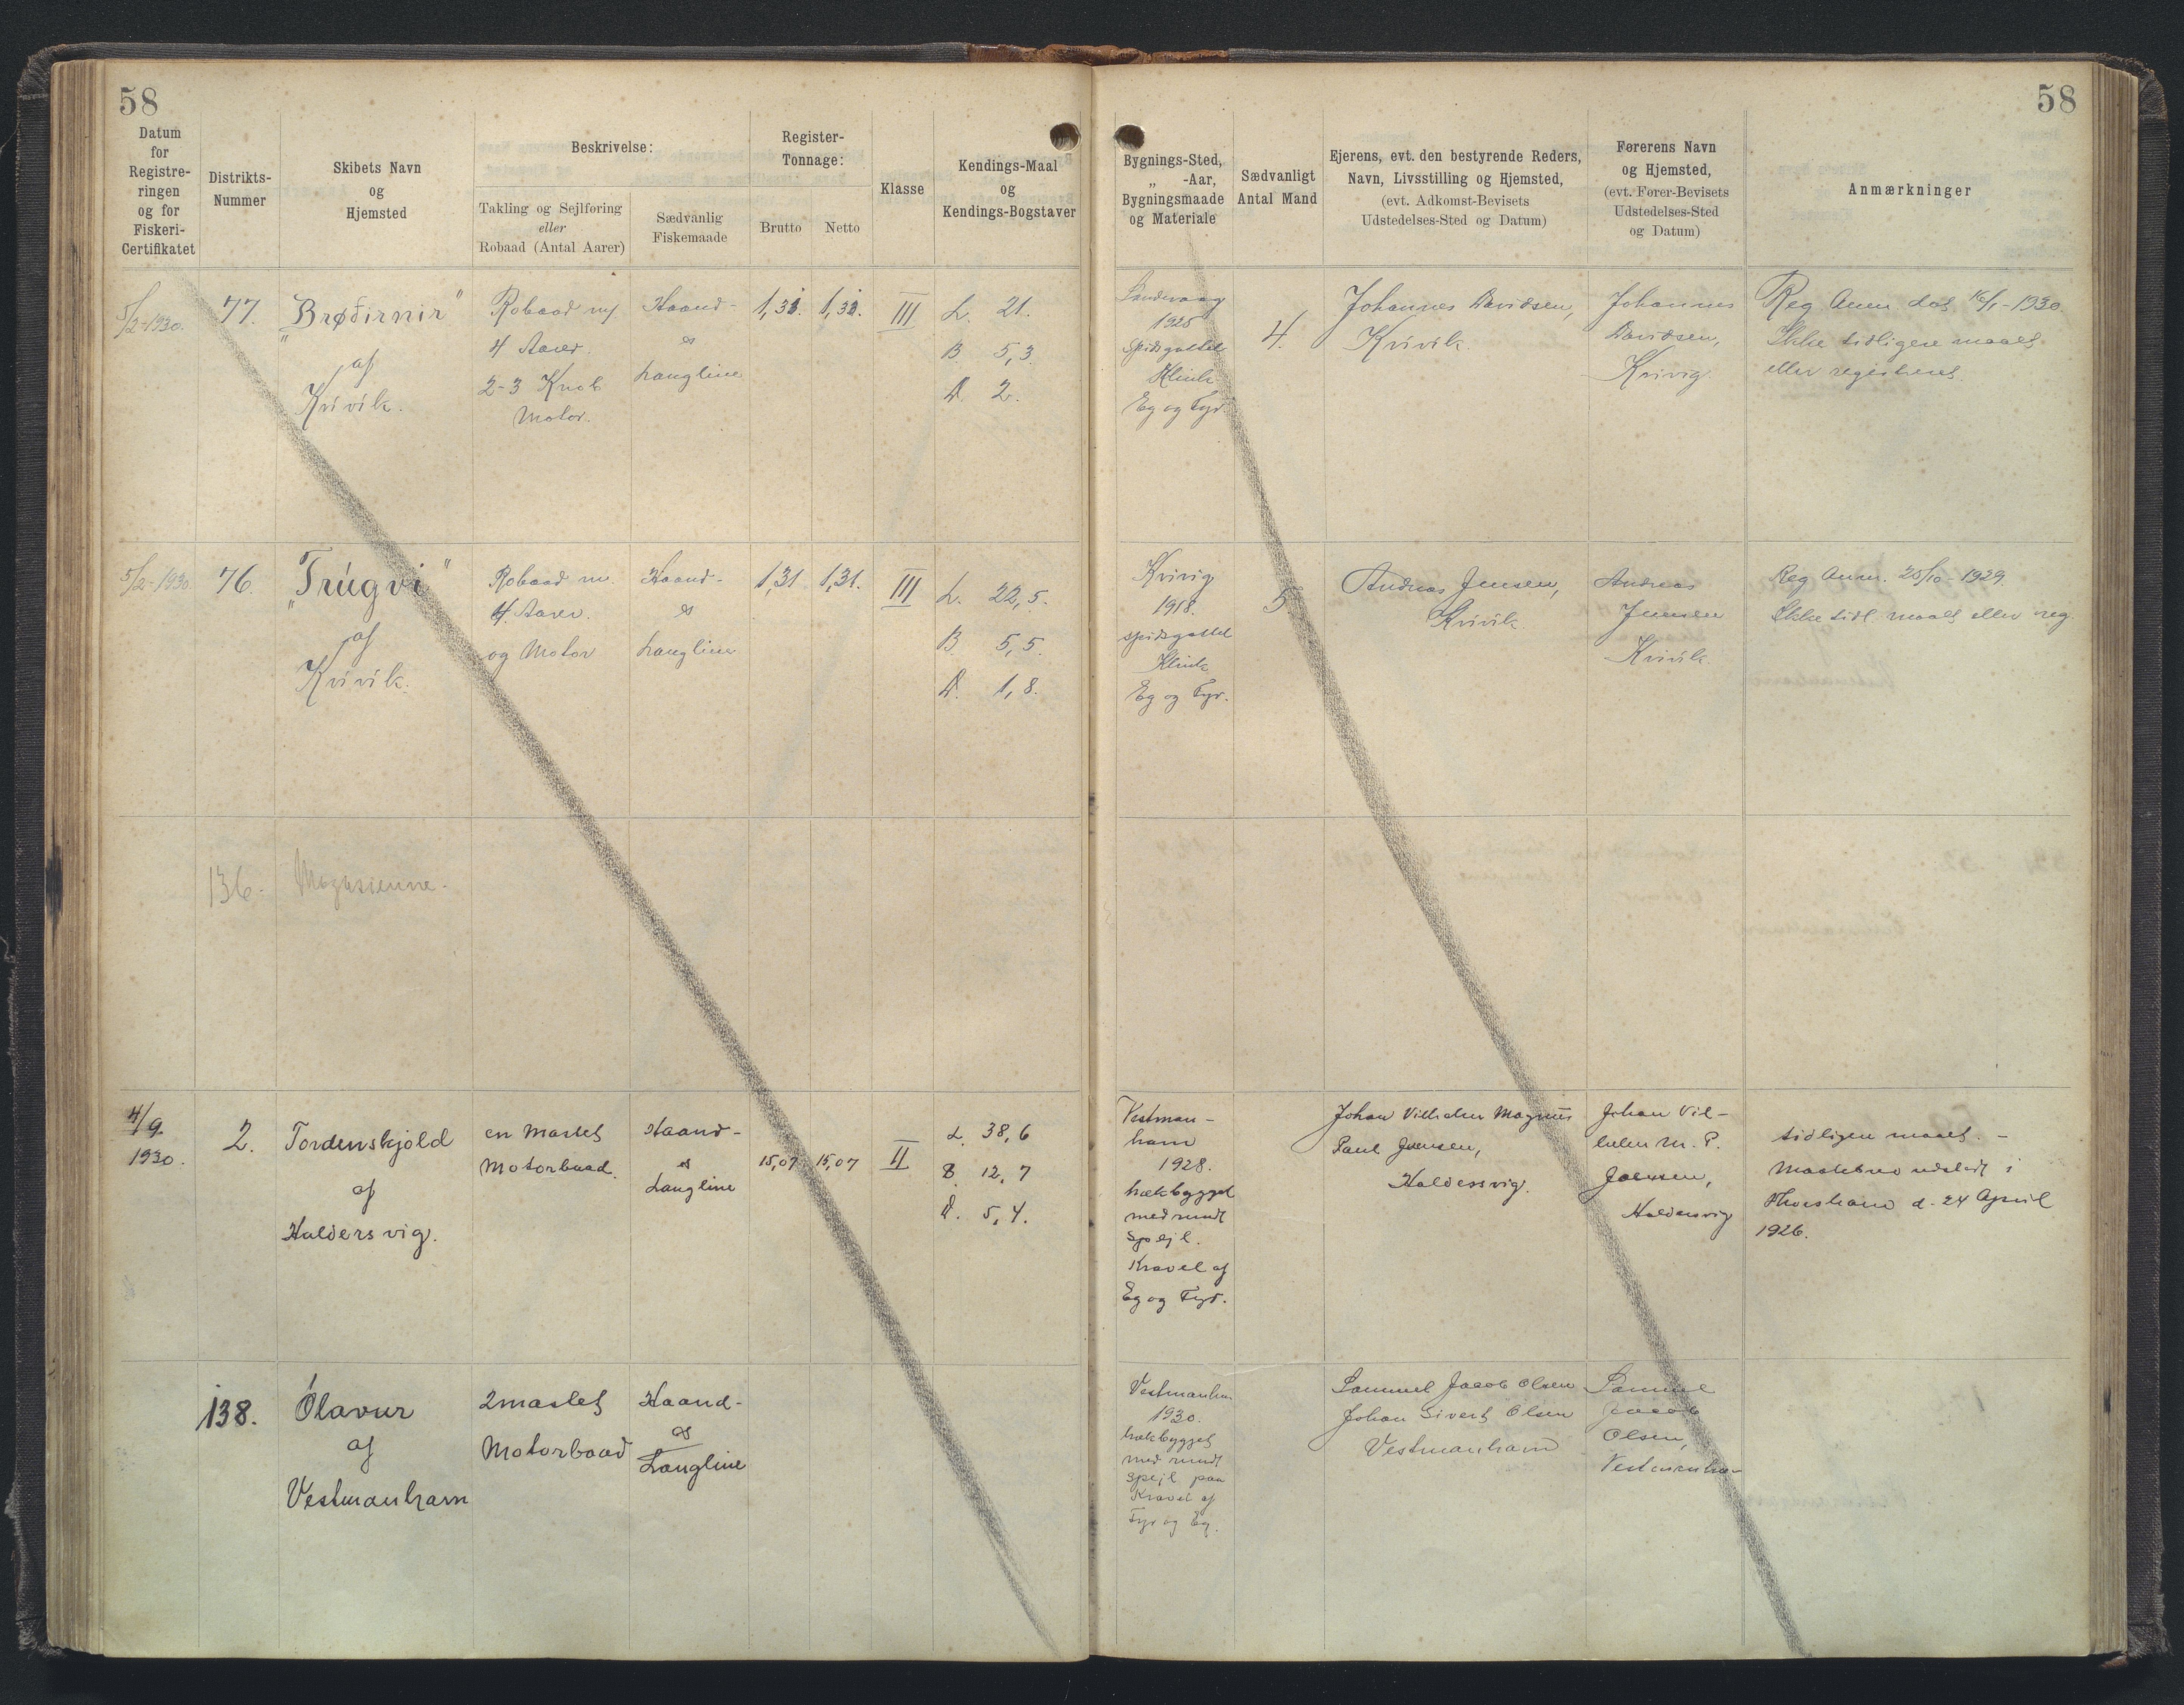 58
58
Datum
for
Registre-
ringen
og for
Fiskeri-
Certifikatet
Distrikts-
Nummer
Skibets Navn
og
Hjemsted
Beskrivelse:
Takling og Sejlføring
eller
Robaad (Antal Aarer)
Sædvanlig
Fiskemaade
Register-
Tonnage:
Brutto
Netto
Klasse
Kendings-Maal
og
Kendings-Bogstaver
Bygnings-Sted,
„ -Aar,
Bygningsmaade
og Materiale
Sædvanligt
Antal Mand
Ejerens, evt. den bestyrende Reders,
Navn, Livsstilling og Hjemsted,
(evt. Adkomst-Bevisets
Udstedelses-Sted og Datum)
Førerens Navn
og Hjemsted,
(evt. Fører-Bevisets
Udstedelses-Sted
og Datum)
Anmærkninger
5/2-1930.
77.
„Brøðirnir"
af
Kvívík.
Robaad m/
4 Aarer.
2-3 Knob
Motor.
Haand-
og
Langline
III
L. 21.
B 5,3
D. 2.
Sandvaag
1925
Spidsgattet
Klink
Eg og Fyr.
4.
Johannes Davidsen,
Kvívík.
Johannes
Davidsen,
Kvivig
Reg Anm dat 16/1-1930.
Ikke tidligere maalt
eller registreret.
5/2-1930.
76.
„Trúgvi"
af
Kvívík.
Robaad m.
4 Aarer.
og Motor
Haand-
og
Langline
1,31
1,31.
III
L. 22,5.
B. 5,5.
D. 1,8.
Kvivig
1918.
spidsgattet
Klink
Eg og Fyr.
5
Andreas Jensen,
Kvívík.
Andreas
Jensen
Kvívík.
Reg Anm. 25/10-1929.
Ikke tidl. maalt eller reg.
136.
4/9.
1930.
2.
Tordenskjold
af
Haldersvig.
en mastet
Motorbaad.
Haand-
og
Langline
15,07
15,07
II
L. 38,6
B. 12,7
D. 5,4.
Vestman-
havn
1928.
hækbygget
med rundt
Spejl.
Kravel af
Eg og Fyr.
Johan Vilhelm Magnus
Paul Joensen,
Haldersvig.
Johan Vil-
helm M. P.
Joensen,
Haldersvig
tidligere maalt. -
Maalebrev udstedt i
Thorshavn d. 24 April
1926.
138.
Ólavur
af
Vestmanhavn
2mastet
Motorbaad
Haand-
og
Langline
Vestmanhavn
1930.
hækbygget
med rundt
Spejl paa
Kravel af
Fyr og Eg.
Samuel Jacob Olsen
Johan Sivert Olsen
Vestmanhavn
Samuel
Jacob
Olsen,